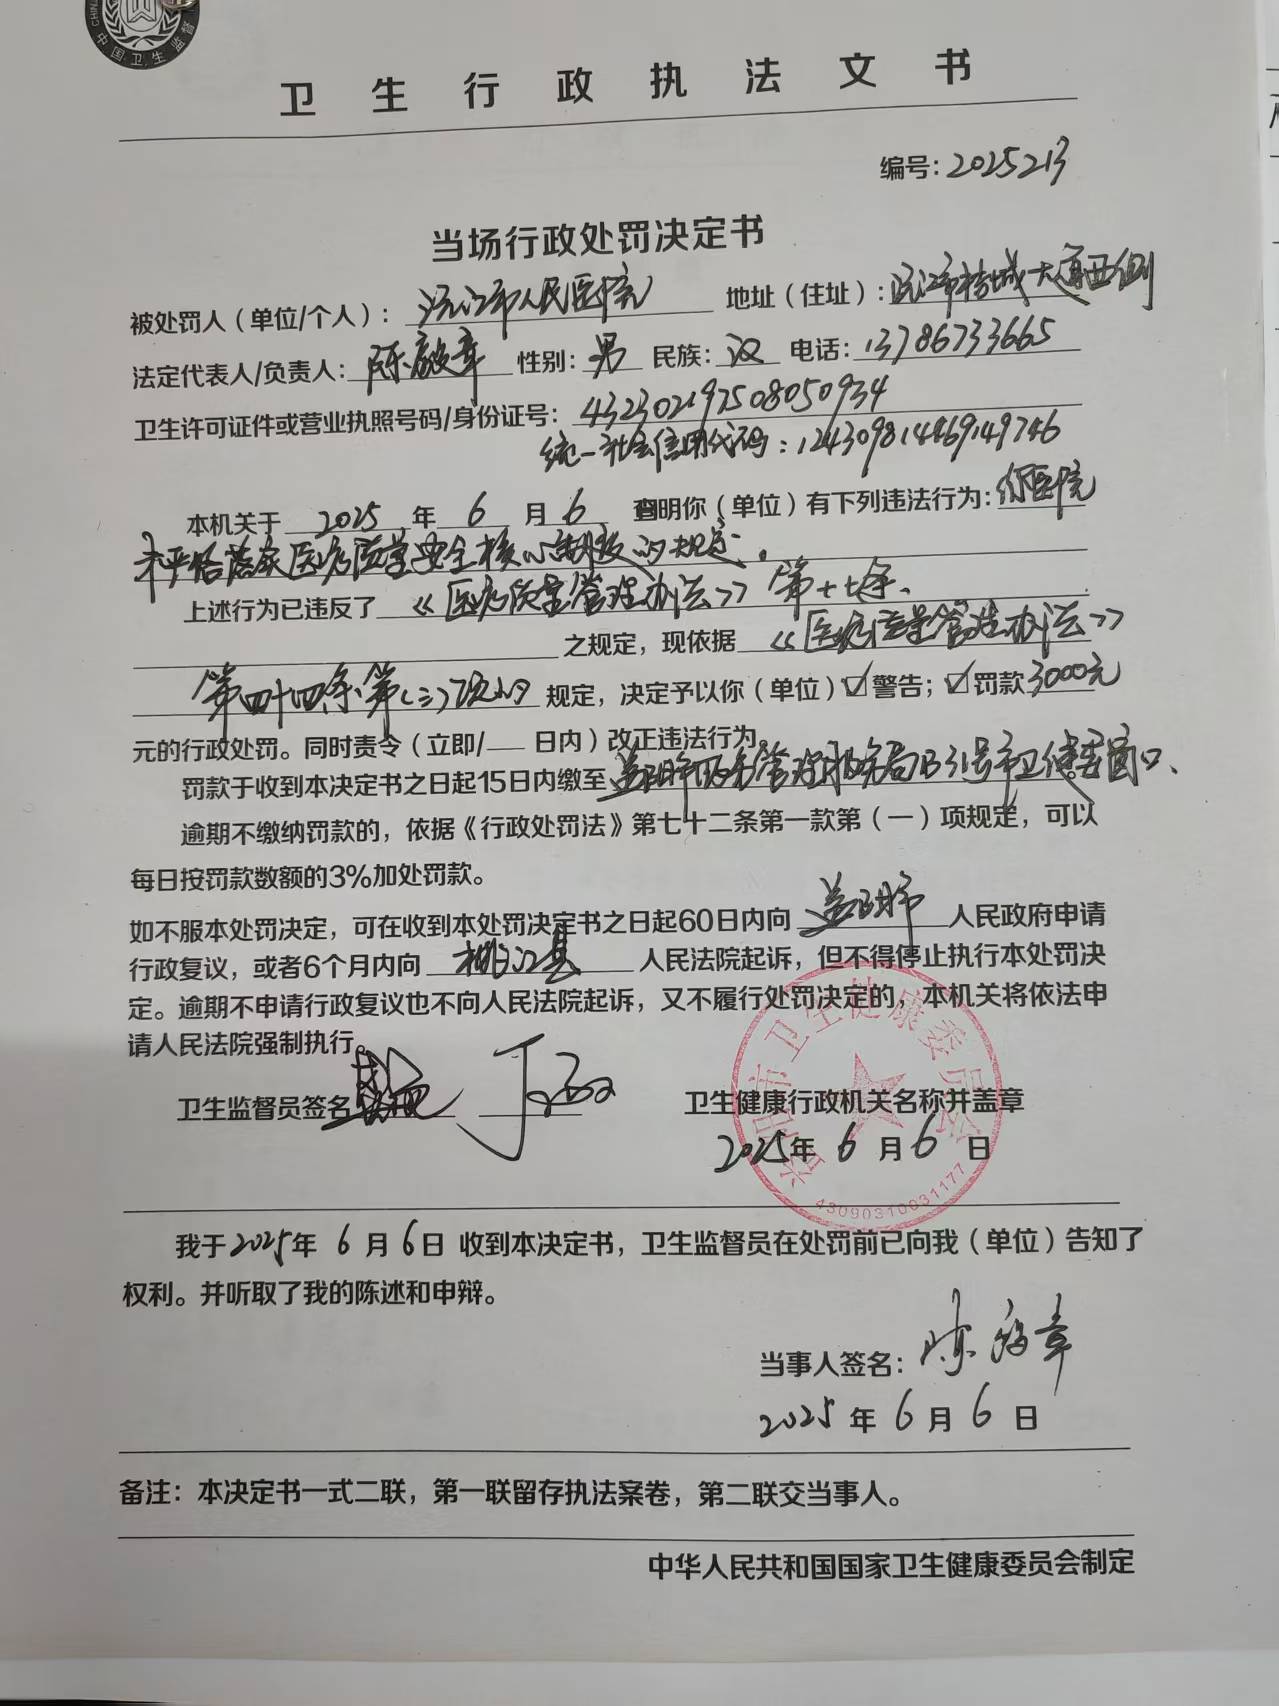 中国卫生监督
卫生行政执法文书
编号：2025213
当场行政处罚决定书
被处罚人（单位/个人）：沅江市人民医院 地址（住址）：沅江市桔城大道西侧
法定代表人/负责人：陈 章 性别：男 民族：汉 电话：13786733665
卫生许可证件或营业执照号码/身份证号：432302197508050934
统一社会信用代码：124309814469149746
本机关于2025年6月6 查明你（单位）有下列违法行为：你医院
未严格落实医疗质量安全核心制度的规定。
上述行为已违反了《医疗质量管理办法》第十七条
之规定，现依据《医疗质量管理办法》
第四十四条第（三）项的规定，决定予以你（单位）☑警告；☑罚款3000元
元的行政处罚。同时责令（立即/ 日内）改正违法行为。
罚款于收到本决定书之日起15日内缴至益阳市政务管理服务局B31号市卫健委窗口、
逾期不缴纳罚款的，依据《行政处罚法》第七十二条第一款第（一）项规定，可以
每日按罚款数额的3%加处罚款。
如不服本处罚决定，可在收到本处罚决定书之日起60日内向益阳市人民政府申请
行政复议，或者6个月内向桃江县人民法院起诉，但不得停止执行本处罚决
定。逾期不申请行政复议也不向人民法院起诉，又不履行处罚决定的，本机关将依法申
请人民法院强制执行。
卫生监督员签名
卫生健康行政机关名称并盖章
2025年6月6日
益阳市卫生健康委员会
43090310031177
我于2025年6月6日收到本决定书，卫生监督员在处罚前已向我（单位）告知了
权利。并听取了我的陈述和申辩。
当事人签名：陈 章
2025年6月6日
备注：本决定书一式二联，第一联留存执法案卷，第二联交当事人。
中华人民共和国国家卫生健康委员会制定